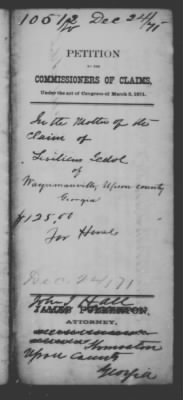 Dec 24/71
PETITION
TO THE
COMMISSIONERS OF CLAIMS,
Under the act of Congress of March 3, 1871.
In the Matter of the
Claim of
of
Waynmanville, Upson County
Georgia
$125.00
For Horse
Dec. 24/71
John I Hall
ATTORNEY,
Thomaston
Upson County
Georgia